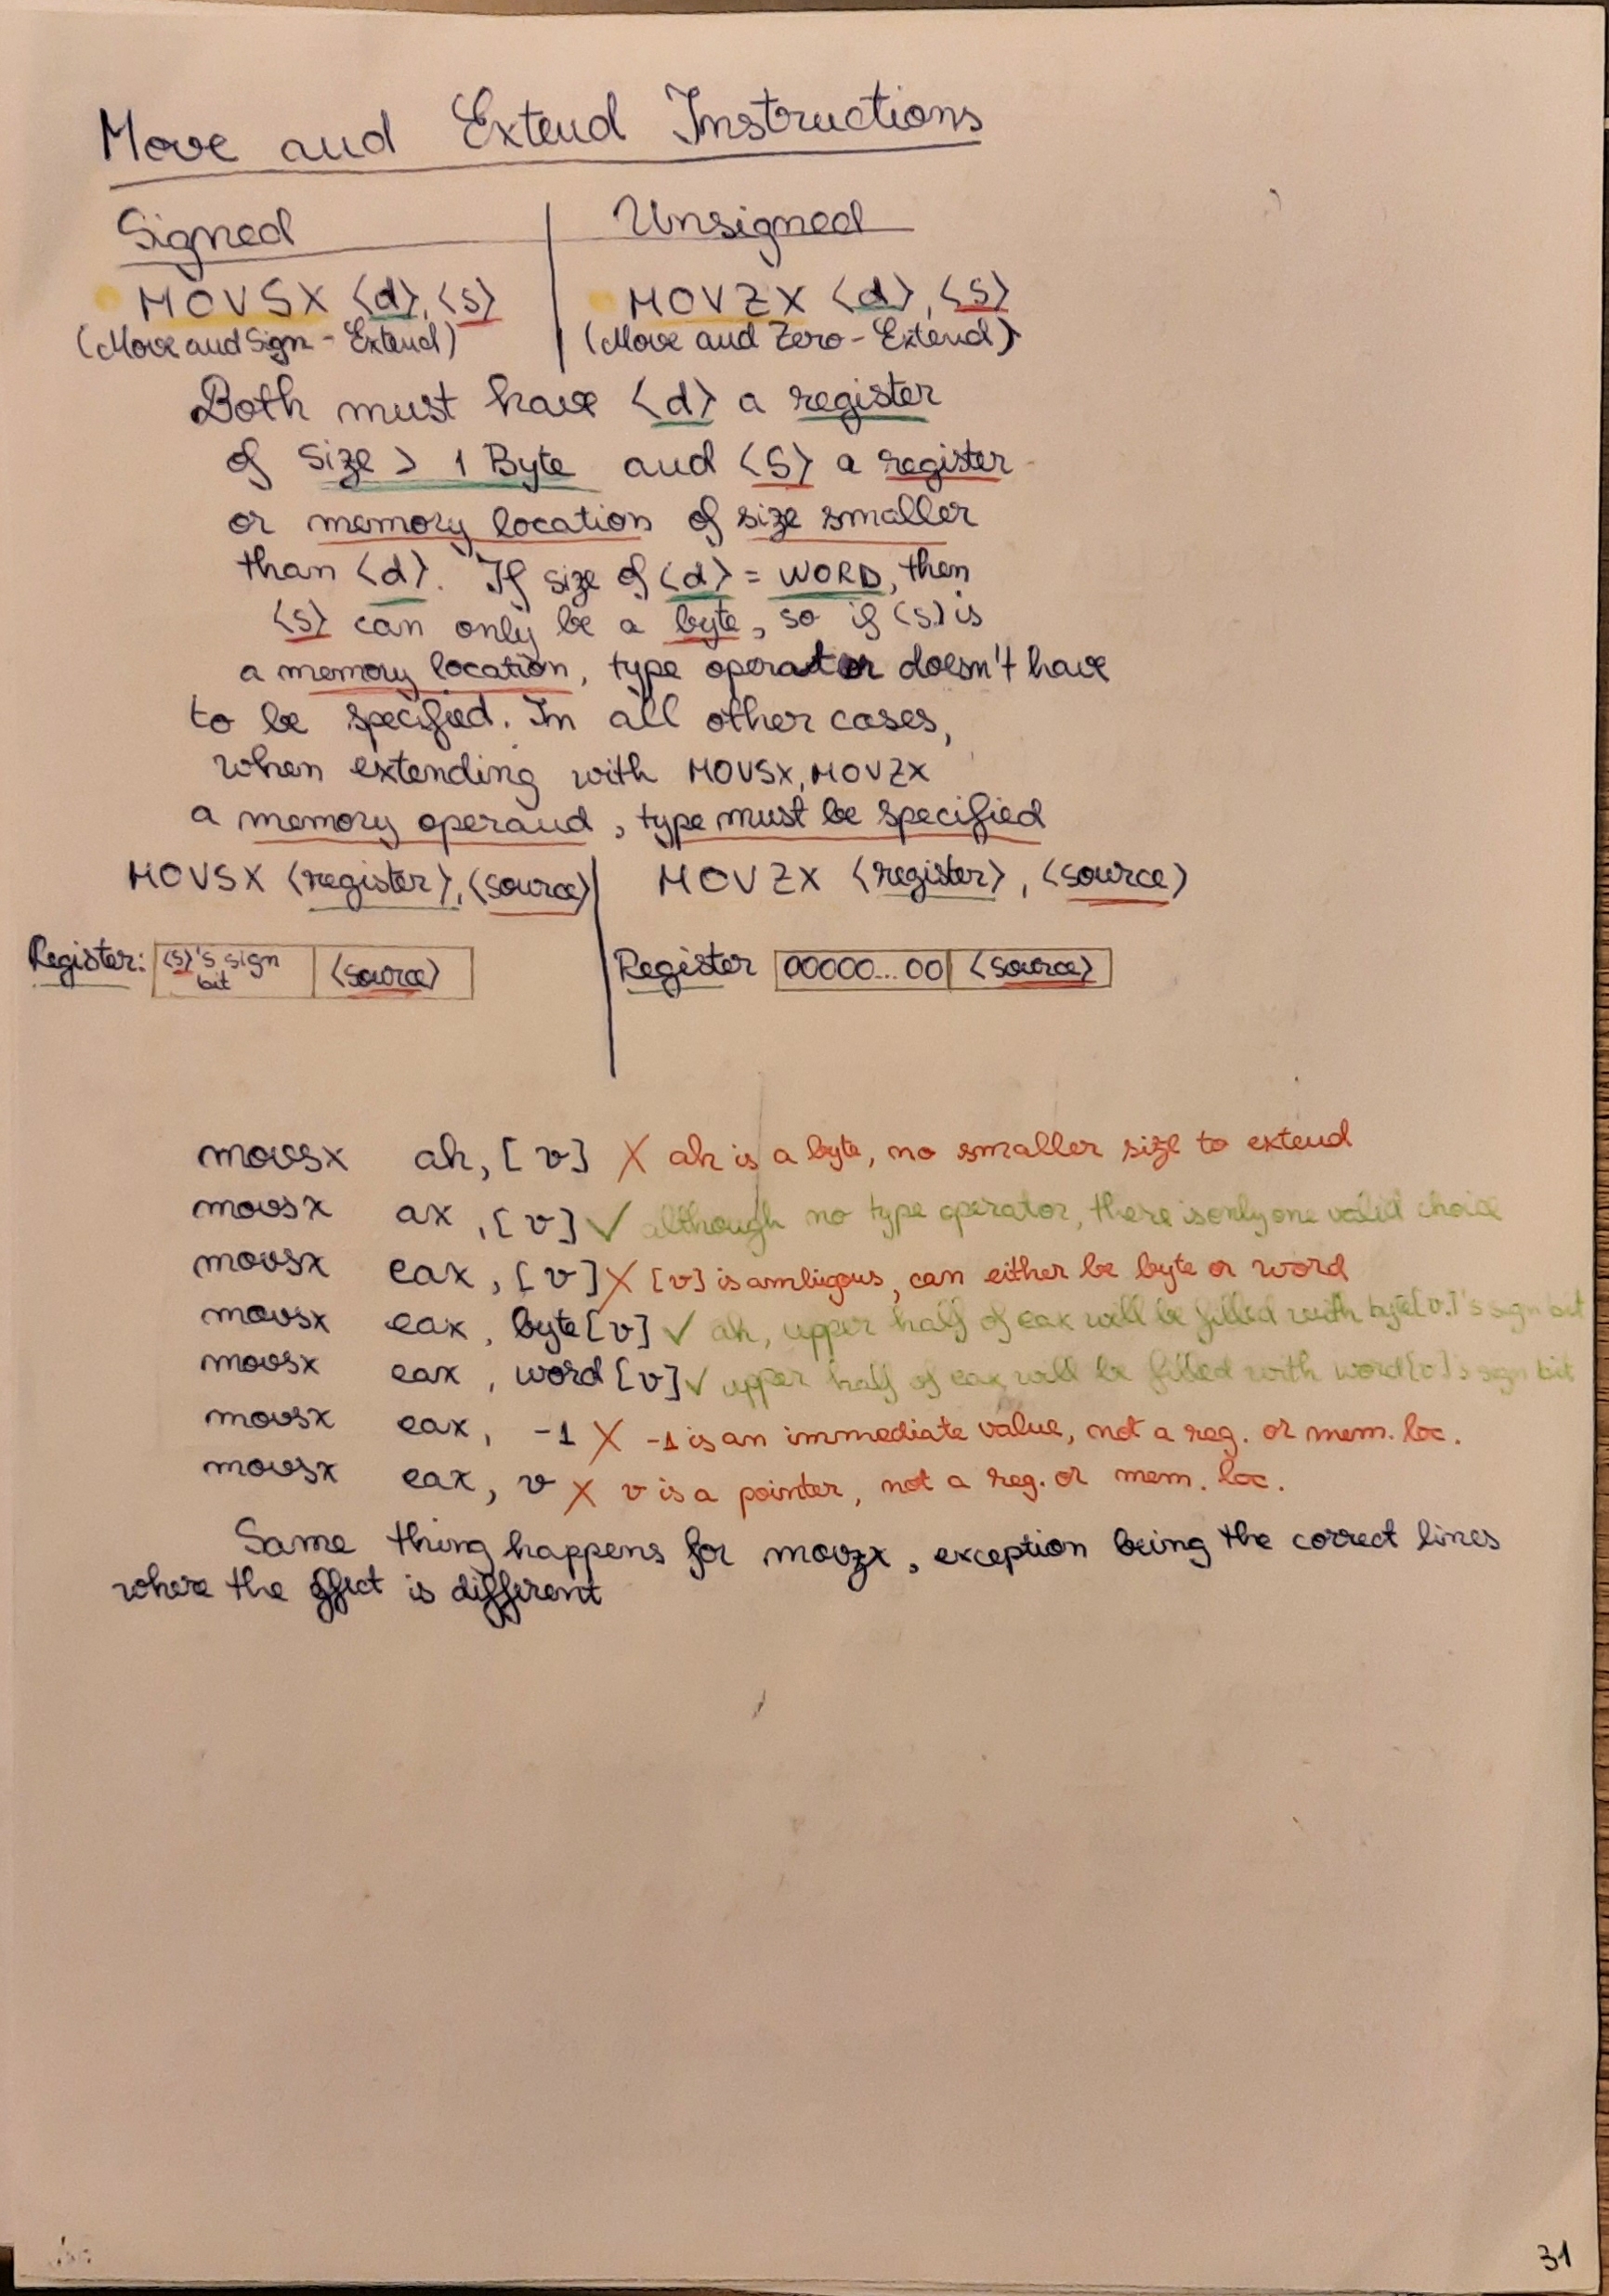 Move and Extend Instructions
Signed | Unsigned
MOVSX <d>, <s> | MOVZX <d>, <s>
(Move and Sign - Extend) | (Move and Zero - Extend)
Both must have <d> a register
of size > 1 Byte and <s> a register
or memory location of size smaller
than <d>. If size of <d> = WORD, then
<s> can only be a byte, so if <s> is
a memory location, type operator doesn't have
to be specified. In all other cases,
when extending with MOVSX, MOVZX
a memory operand, type must be specified
MOVSX <register>, <source> | MOVZX <register>, <source>
Register: <s>'s sign bit | <source> Register 00000...00 | <source>
movsx ah, [v] X ah is a byte, no smaller size to extend
movsx ax, [v] ✓ although no type operator, there is only one valid choice
movsx eax, [v] X [v] is ambigous, can either be byte or word
movsx eax, byte[v] ✓ ah, upper half of eax will be filled with byte[v]'s sign bit
movsx eax, word[v] ✓ upper half of eax will be filled with word[v]'s sign bit
movsx eax, -1 X -1 is an immediate value, not a reg. or mem. loc.
movsx eax, v X v is a pointer, not a reg. or mem. loc.
Same thing happens for movzx, exception being the correct lines
where the effect is different
31